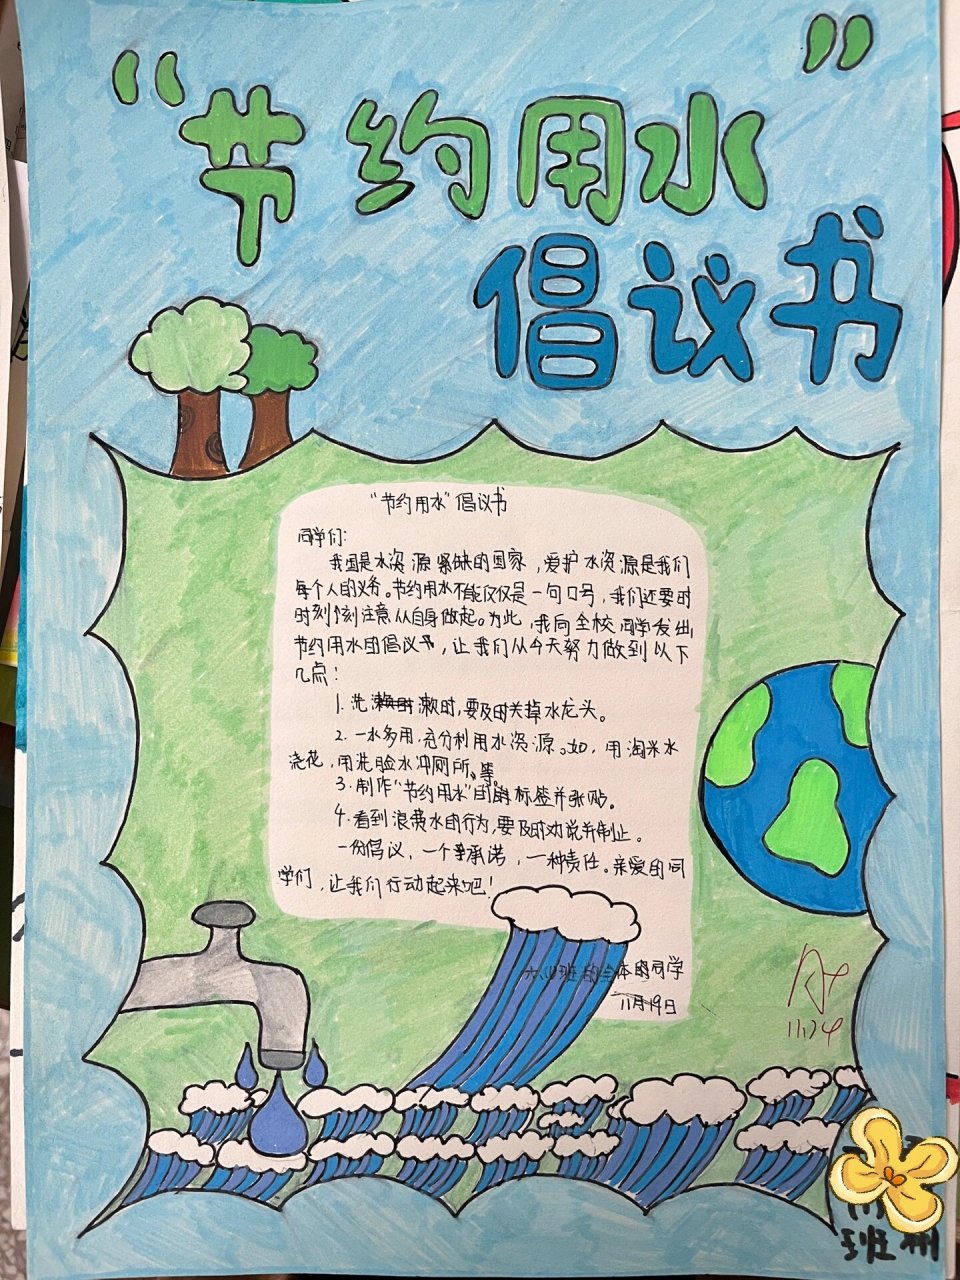 “节约用水”
倡议书
“节约用水”倡议书
同学们:
我国是水资源紧缺的国家，爱护水资源是我们
每个人的义务。节约用水不能仅仅是一句口号，我们还要时
时刻刻注意从自身做起。为此，我向全校同学发出
节约用水的倡议书，让我们从今天努力做到以下
几点！
1. 洗漱时，要及时关掉水龙头。
2. 一水多用，充分利用水资源。如，用淘米水
浇花，用洗脸水冲厕所等。
3. 制作“节约用水”的标签并张贴。
4. 看到浪费水的行为，要及时劝说并制止。
一份倡议，一个承诺，一种责任。亲爱的同
学们，让我们行动起来吧！
班的全体的同学
11月19日
11.24
班